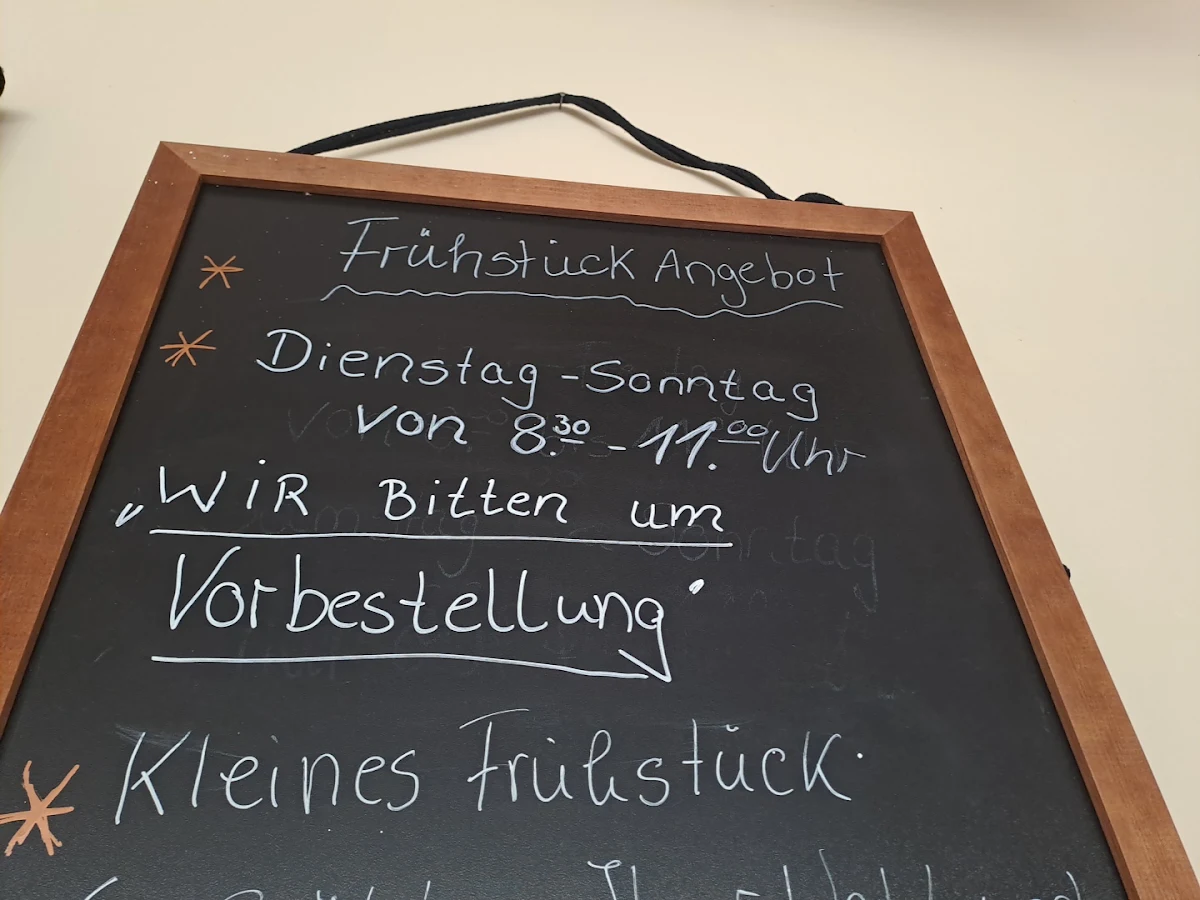 Frühstück Angebot
Dienstag - Sonntag
von 8.30 - 11.00 Uhr
„WiR Bitten um
Vorbestellung"
Kleines Frühstück